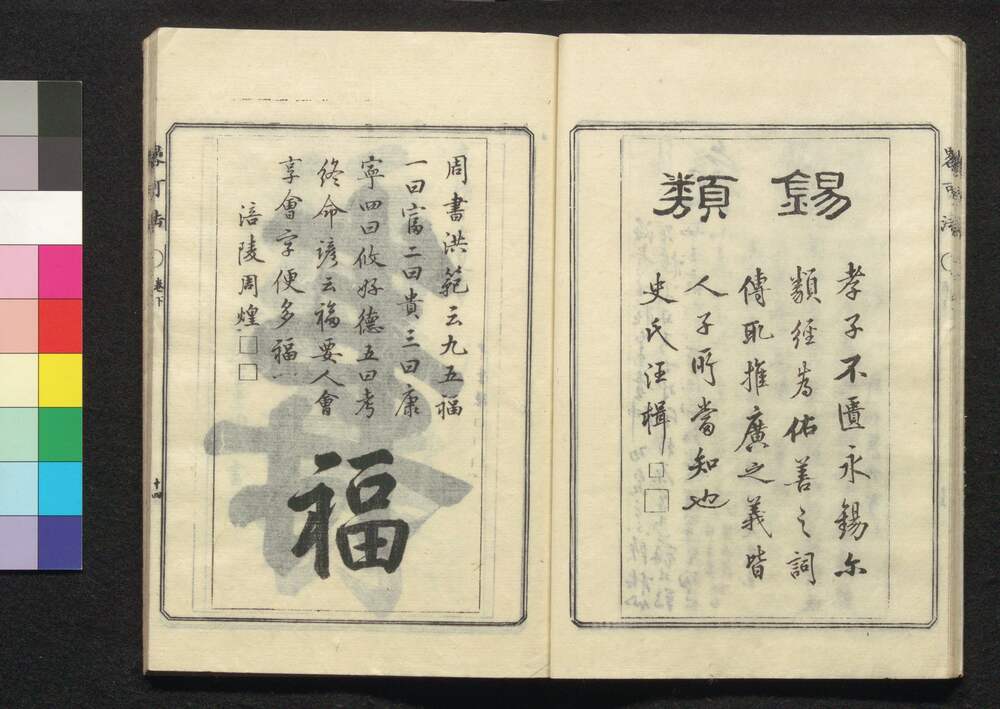 錫類
孝子不匱永錫尓
類經為佑善之詞
傳取推廣之義皆
人子所當知也
史氏汪楫
周書洪範云九五福
一曰富二曰貴三曰康
寧四曰攸好德五曰考
終命諺云福要人會
享會字便多福
涪陵周煌
福
卷下
十四